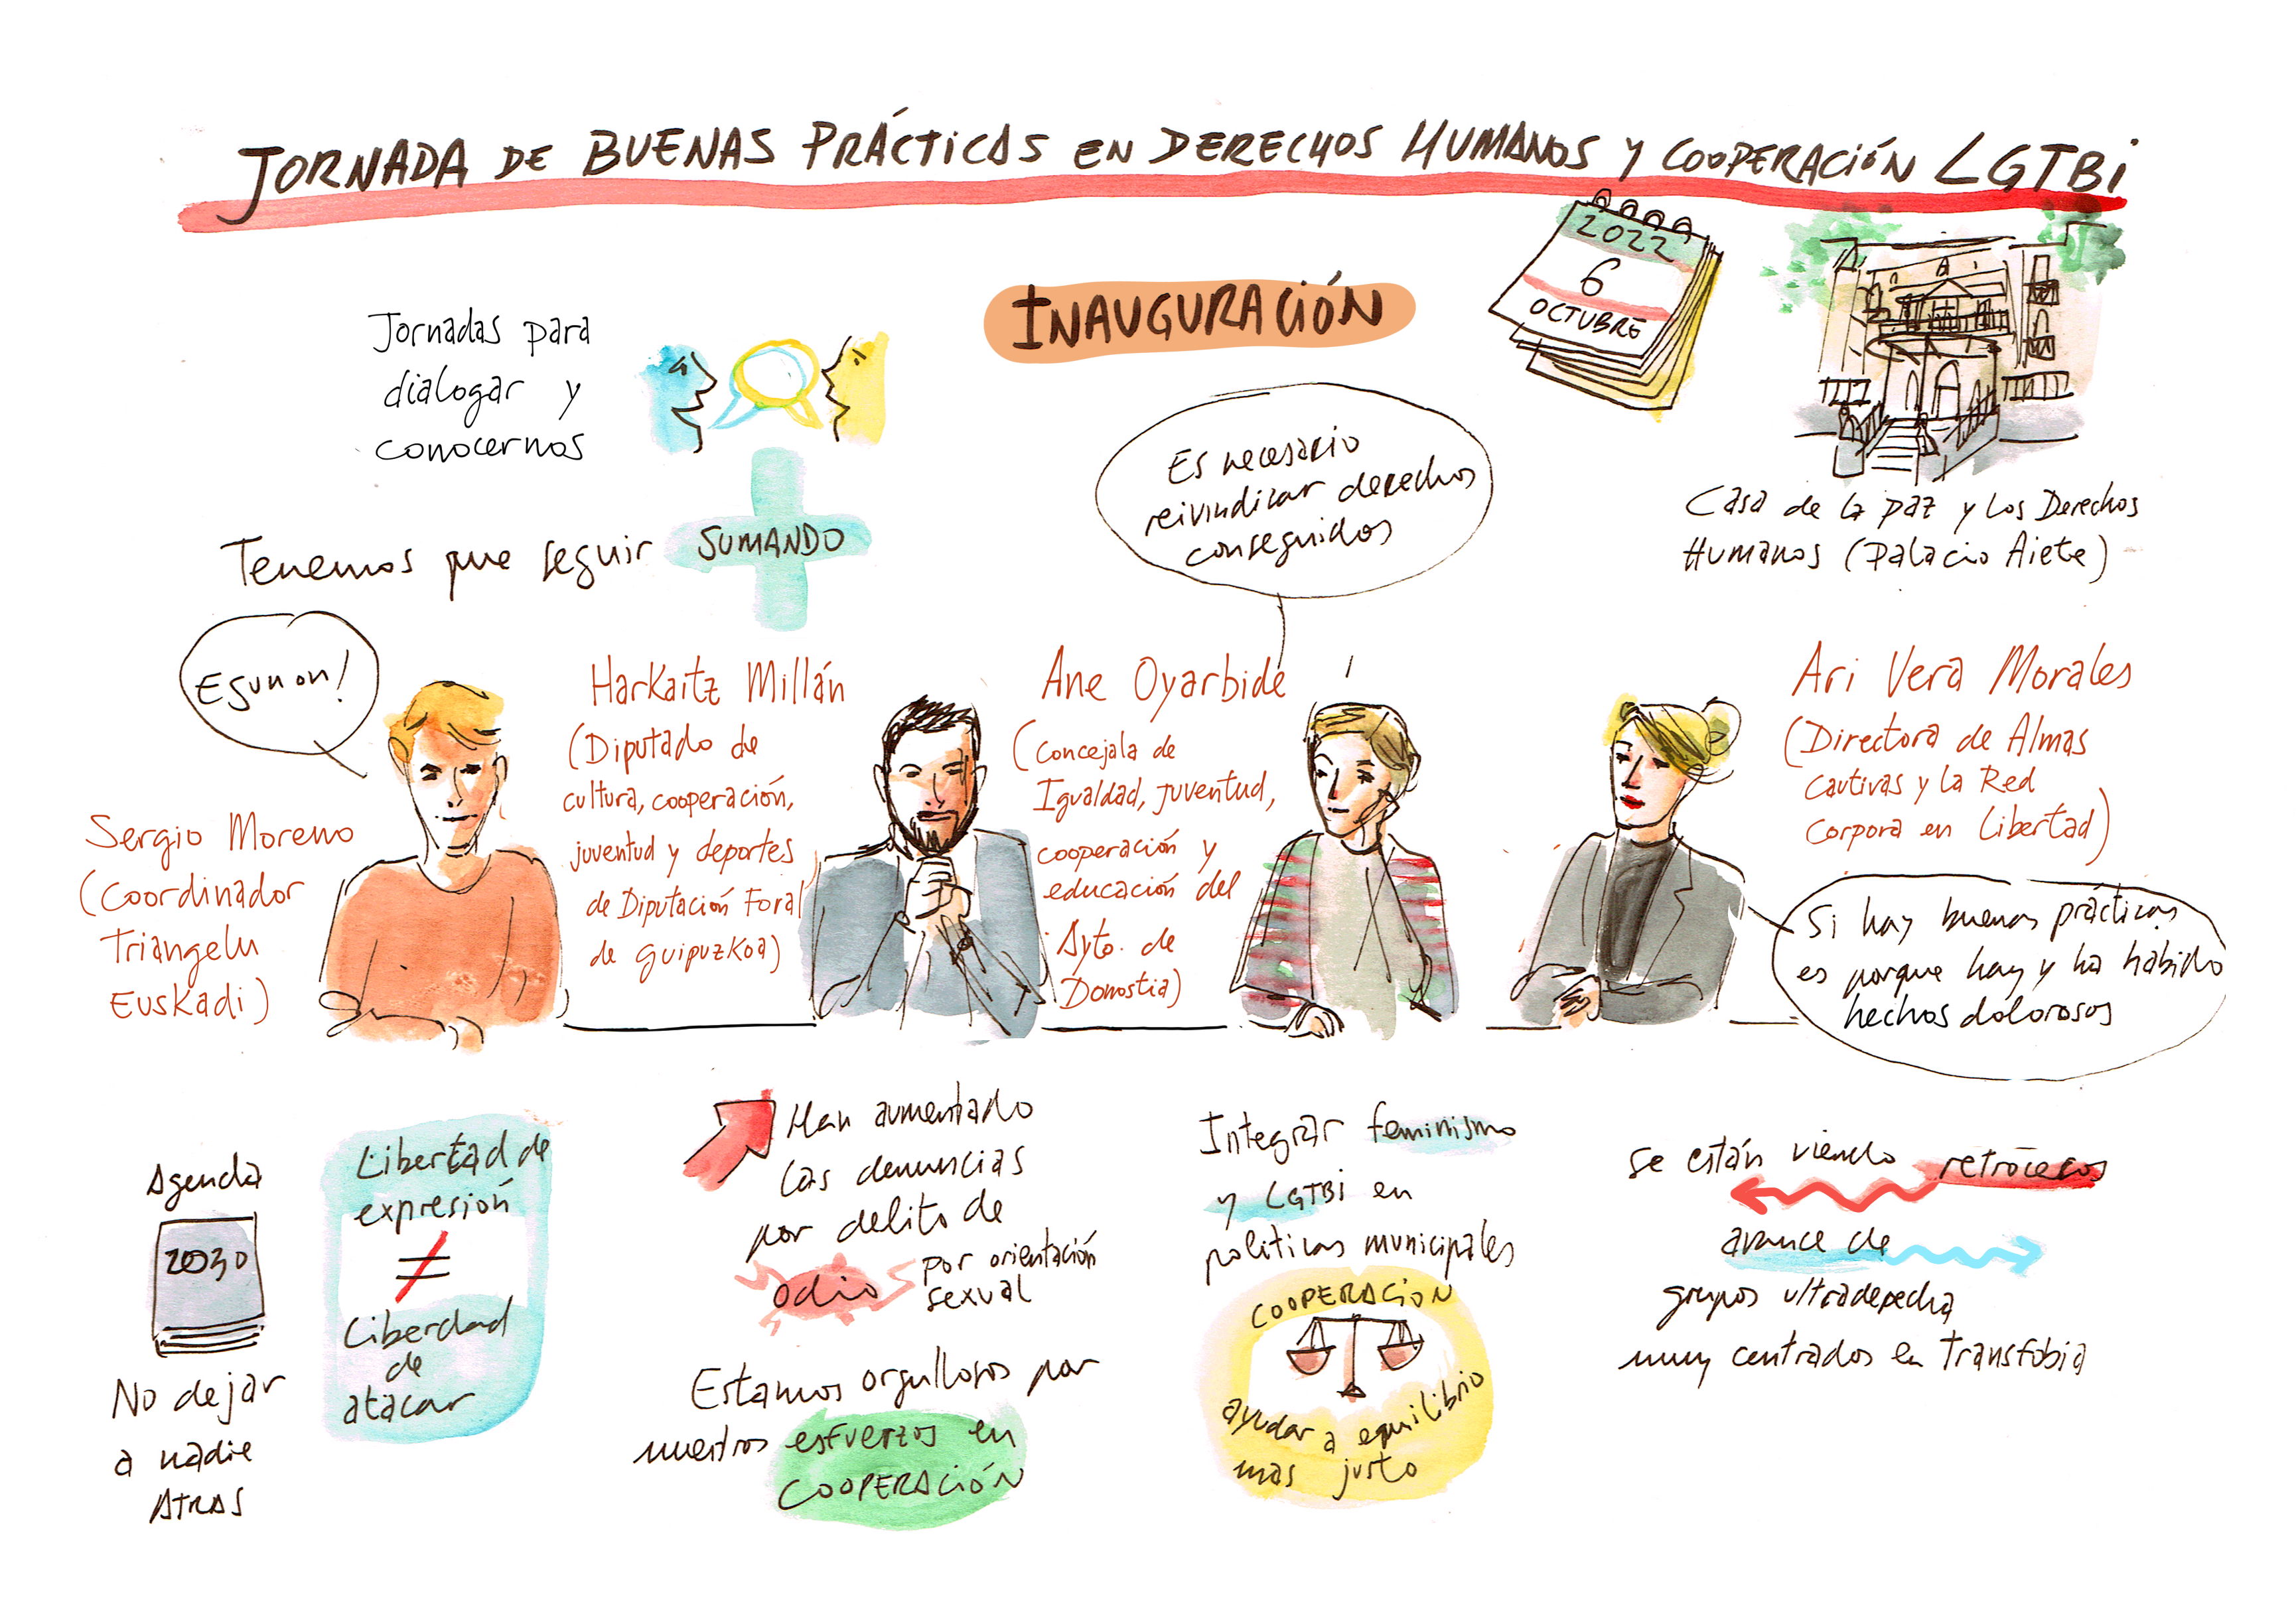 JORNADA DE BUENAS PRÁCTICAS EN DERECHOS HUMANOS Y COOPERACIÓN LGTBi
INAUGURACIÓN
2022
6
OCTUBRE
Casa de la paz y los Derechos
Humanos (Palacio Aiete)
Jornadas para
dialogar y
conocernos
Tenemos que seguir SUMANDO
Es necesario
reivindicar derechos
conseguidos
Egun on!
Sergio Moreno
(Coordinador
Triangelu
Euskadi)
Harkaitz Millán
(Diputado de
cultura, cooperación,
juventud y deportes
de Diputación Foral
de Guipuzkoa)
Ane Oyarbide
(Concejala de
Igualdad, juventud,
cooperación y
educación del
Ayto. de
Donostia)
Ari Vera Morales
(Directora de Almas
Cautivas y la Red
Corpora en Libertad)
Si hay buenas prácticas
es porque hay y ha habido
hechos dolorosos
Agenda
2030
No dejar
a nadie
ATRAS
Libertad de
expresión
≠
Libertad
de
atacar
Han aumentado
las denuncias
por delito de
odio por orientación
sexual
Estamos orgullosos por
nuestros esfuerzos en
COOPERACIÓN
Integrar feminismo
y LGTBi en
politicas municipales
COOPERACIÓN
ayudar a equilibrio
mas justo
Se están viendo retrocesos
avance de
grupos ultraderecha,
muy centrados en Transfobia